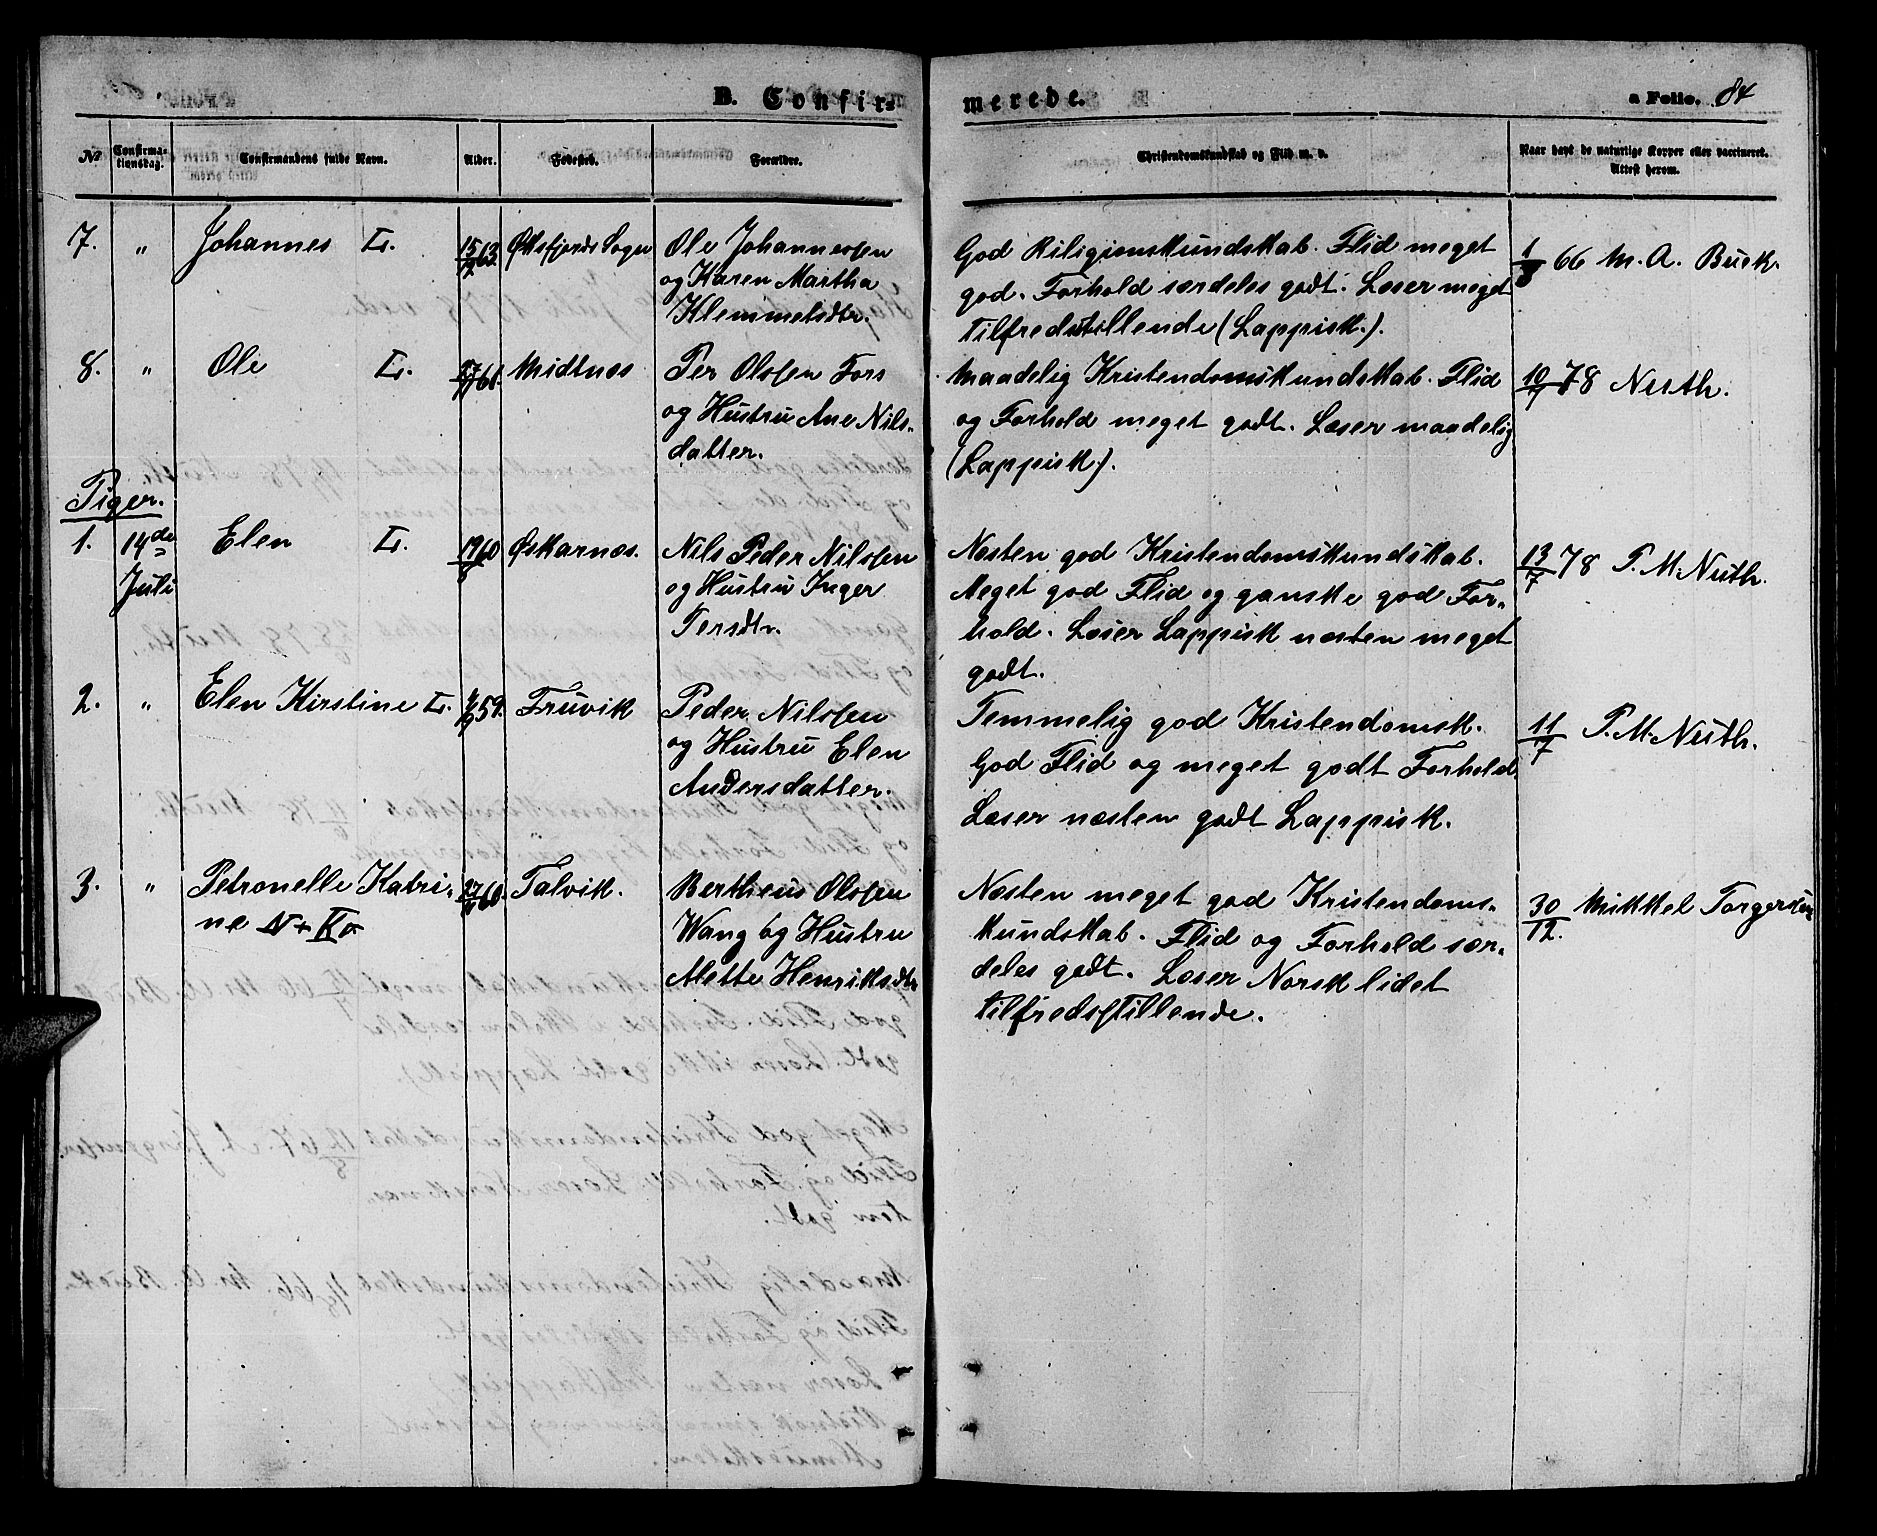 B. Confir-
merede.
a Folio. 84
No
Confirma-
tionsdag.
Confirmandens fulde Navn.
Alder.
Fødested.
Forældre.
Christendomskundskab og Flid m. v.
Naar havt de naturlige Kopper eller vaccineret.
Attest herom.
7. " Johannes L. 63. Øksfjords Sogn Ole Johannessen
og Karen Martha
Klemmetsdtr.
God Riligionskundskab. Flid meget
god. Forhold særdeles godt. Læser meget
tilfredstillende (Lappisk.).
1/8 66 M. A. Buck.
8. " Ole L. 61. Midtnæs Per Olsen Fors
og Hustru Ane Nils-
datter.
Maadelig Kristendomskundskab. Flid
og Forhold meget godt. Læser maadelig
(Lappisk.).
10/7 78 Nuth.
Piger.
1. 14de
Juli
Elen L. 19/8 60 Øskarnæs. Nils Peder Nilssen
og Hustru Inger
Persdtr.
Næsten god Kristendomskundskab.
Meget god Flid og ganske god For-
hold. Læser Lappisk næsten meget
godt.
13/7 78 P. M. Nuth.
2. " Elen Kirstine L. 59. Fruvik Peder Nilssen
og Hustru Elen
Andersdatter.
Temmelig god Kristendomsk.
God Flid og meget godt Forhold
Læser næsten godt Lappisk.
11/7 P. M. Nuth.
3. " Petronelle Katri-
ne N + Kv 60. Talvik. Bertheus Olssen
Wang og Hustru
Alette Henriksdtr
Næsten meget god Kristendoms-
kundskab. Flid og Forhold sær-
deles godt. Læser Norsk lidet
tilfredsstillende.
30/12. Mikkel Torgersen